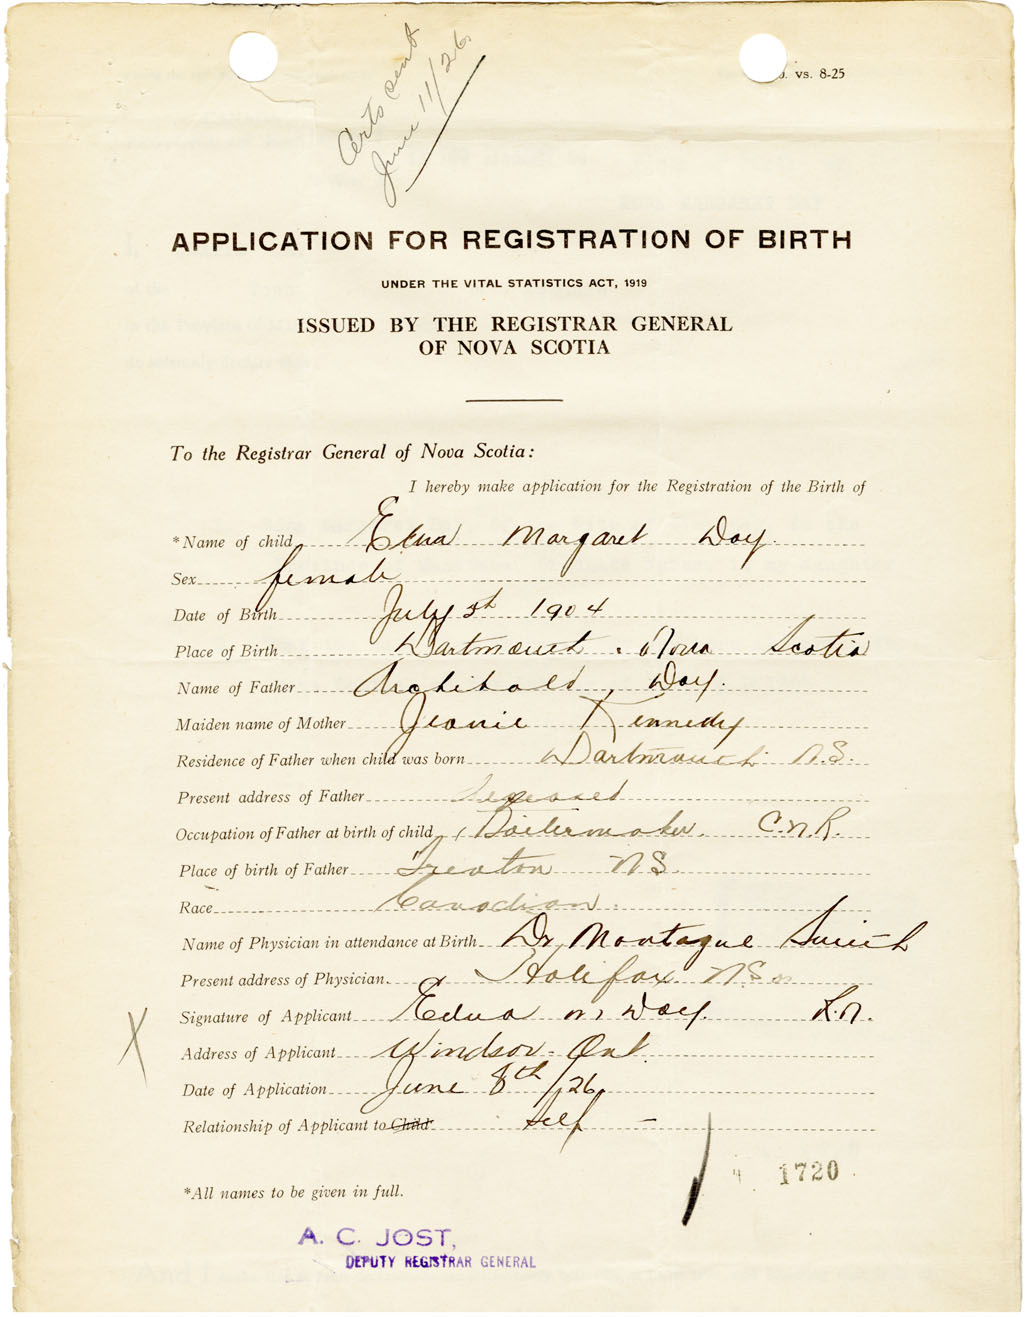 Certs sent
June 11/26
. vs. 8-25
APPLICATION FOR REGISTRATION OF BIRTH
UNDER THE VITAL STATISTICS ACT, 1919
ISSUED BY THE REGISTRAR GENERAL
OF NOVA SCOTIA
To the Registrar General of Nova Scotia:
I hereby make application for the Registration of the Birth of
*Name of child Edna Margaret Day.
Sex female
Date of Birth July 5th 1904
Place of Birth Dartmouth. Nova Scotia
Name of Father Archibald, Day.
Maiden name of Mother Jeanie Kennedy
Residence of Father when child was born Dartmouth N.S.
Present address of Father Deceased
Occupation of Father at birth of child Boilermaker. C.N.R.
Place of birth of Father Trenton N S.
Race Canadian.
Name of Physician in attendance at Birth Dr Montague Smith
Present address of Physician. Halifax N.S.
Signature of Applicant Edna M, Day. R.N.
X
Address of Applicant Windsor. Ont.
Date of Application June 8th/26
Relationship of Applicant to Child Self -
1720
*All names to be given in full.
A. C. JOST,
DEPUTY REGISTRAR GENERAL